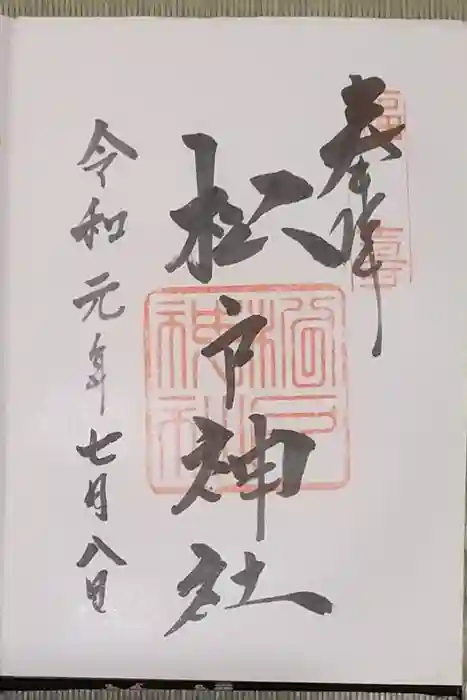 奉拝
松戸神社
令和元年七月八日
松戸神社